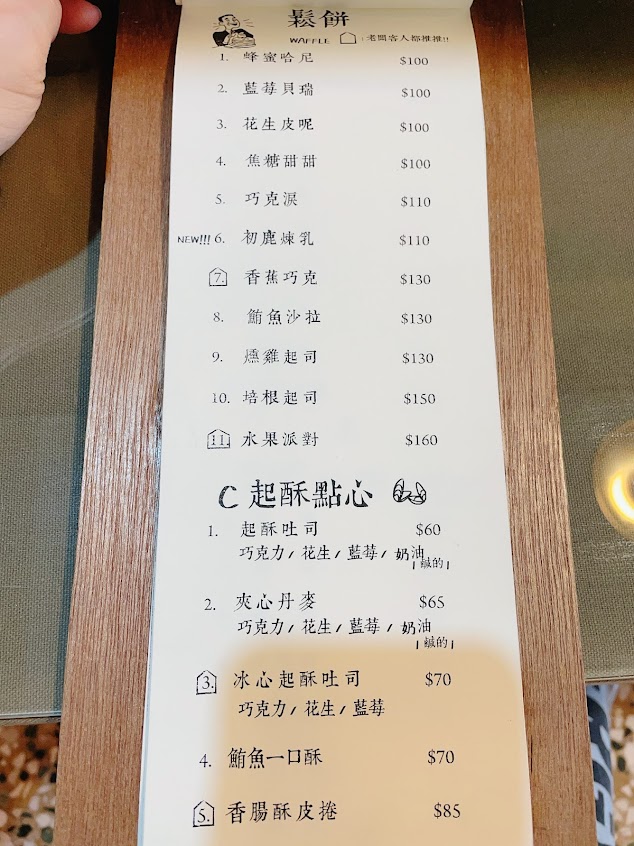 鬆餅
WAFFLE :老闆客人都推推!!
1. 蜂蜜哈尼 $100
2. 藍莓貝瑞 $100
3. 花生皮呢 $100
4. 焦糖甜甜 $100
5. 巧克淚 $110
NEW!!! 6. 初鹿煉乳 $110
7. 香蕉巧克 $130
8. 鮪魚沙拉 $130
9. 燻雞起司 $130
10. 培根起司 $150
11. 水果派對 $160
C 起酥點心
1. 起酥吐司 $60
巧克力/花生/藍莓/奶油
|鹹的|
2. 夾心丹麥 $65
巧克力/花生/藍莓/奶油
|鹹的|
3. 冰心起酥吐司 $70
巧克力/花生/藍莓
4. 鮪魚一口酥 $70
5. 香腸酥皮捲 $85